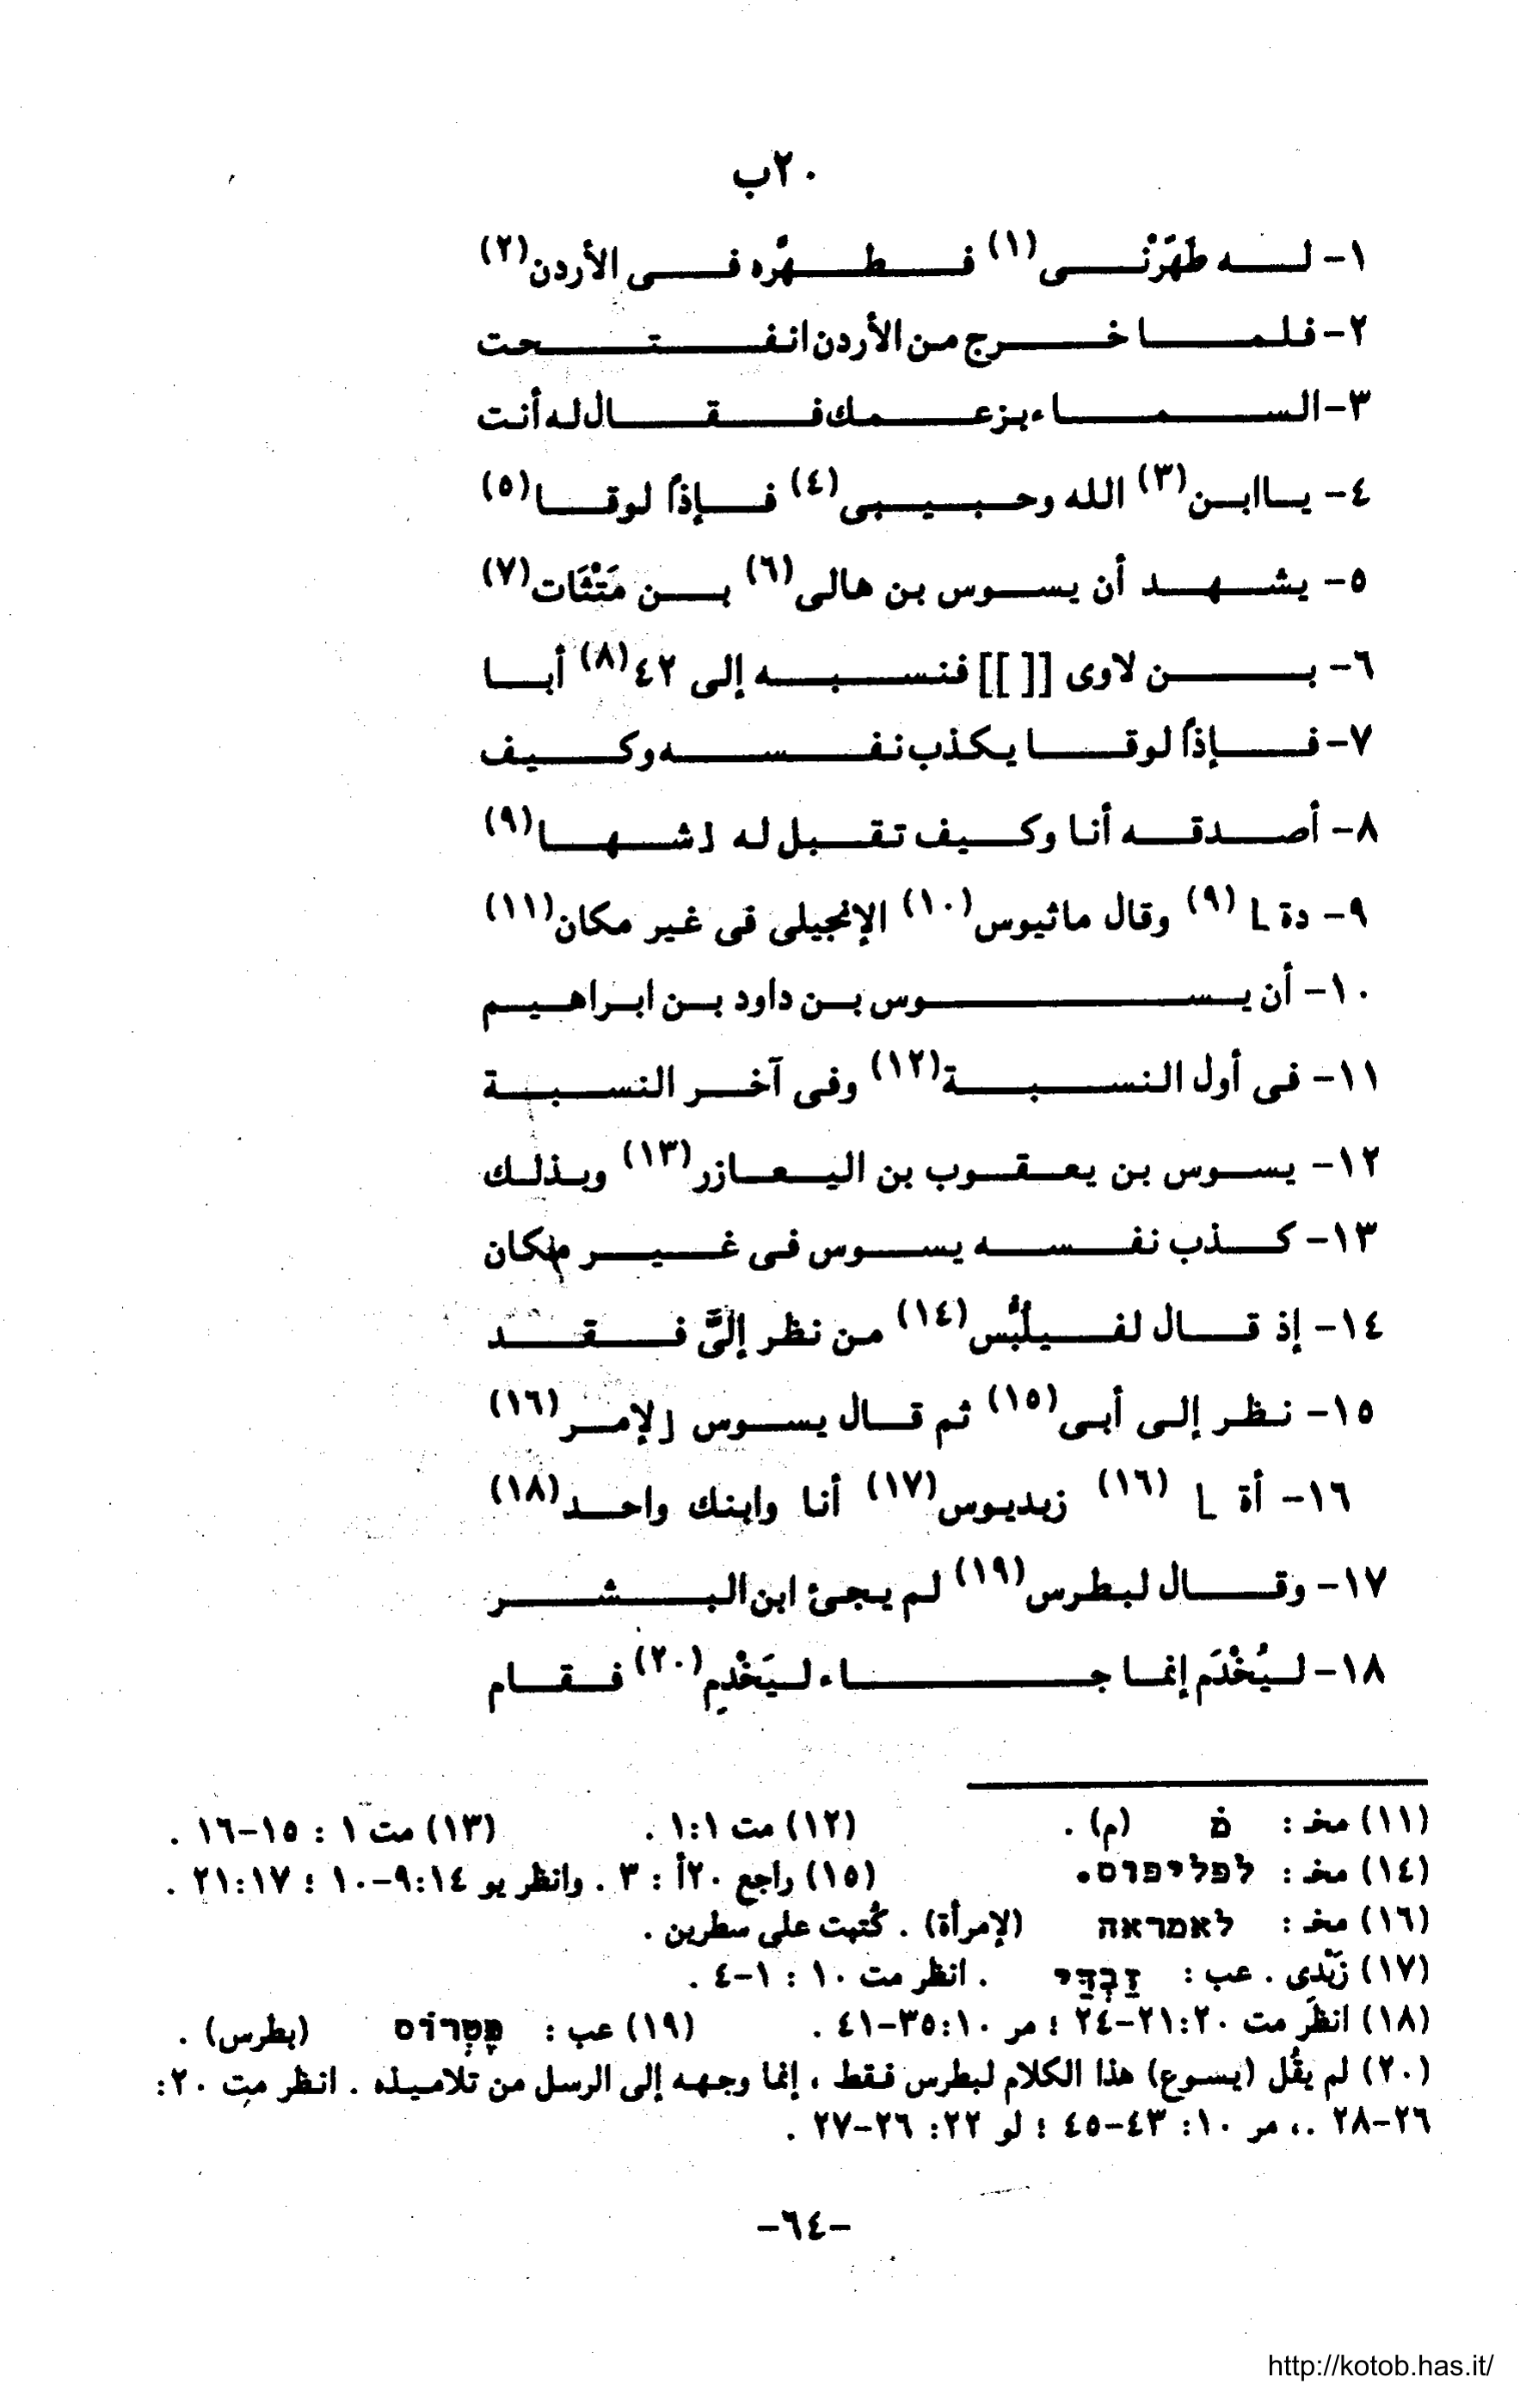 ٢٠ب
١- له طَهِّرْنى(١) فطهَّره فى الأردن(٢)
٢- فلما خرج من الأردن انفتحت
٣- السماء بزعمك فقال له أنت
٤- ياابن(٣) الله وحبيبى(٤) فإذاً لوقا(٥)
٥- يشهد أن يسوس بن هالى(٦) بن مَتْثَات(٧)
٦- بن لاوى [[ ]] فنسبه إلى ٤٢(٨) أبا
٧- فإذاً لوقا يكذب نفسه وكيف
٨- أصدقه أنا وكيف تقبل له ⌋شها(٩)
٩- دة⌊ (٩) وقال ماثيوس(١٠) الإنجيلى فى غير مكان(١١)
١٠- أن يسوس بن داود بن ابراهيم
١١- فى أول النسبة(١٢) وفى آخر النسبة
١٢- يسوس بن يعقوب بن اليعازر(١٣) وبذلك
١٣- كذب نفسه يسوس فى غير مكان
١٤- إذ قال لفيلبُّس(١٤) من نظر إلىَّ فقد
١٥- نظر إلى أبى(١٥) ثم قال يسوس ⌋لإمر(١٦)
١٦- أة ⌊ (١٦) زبديوس(١٧) أنا وابنك واحد(١٨)
١٧- وقال لبطرس(١٩) لم يجئ ابن البشر
١٨- ليُخْدَم إنما جاء ليَخْدِم(٢٠) فقام
(١١) مخ : מׄ (م) . (١٢) مت ١:١ . (١٣) مت ١ : ١٥-١٦ .
(١٤) مخ : לפליפוס. (١٥) راجع ٢٠أ : ٣ . وانظر يو ١٤:٩-١٠ ؛ ٢١:١٧ .
(١٦) مخ : לאמראה (لإمرأة) . كُتبت على سطرين .
(١٧) زَبْدِى . عب : זַבְדַּי . انظر مت ١٠ : ١-٤ .
(١٨) انظر مت ٢٠:٢١-٢٤ ؛ مر ١٠:٣٥-٤١ . (١٩) عب : פֶּטְרוֹס (بطرس) .
(٢٠) لم يقُل (يسوع) هذا الكلام لبطرس فقط ، إنما وجهه إلى الرسل من تلاميذه . انظر مت ٢٠:
٢٦-٢٨ .، مر ١٠: ٤٣-٤٥ ؛ لو ٢٢: ٢٦-٢٧ .
-٦٤-
http://kotob.has.it/